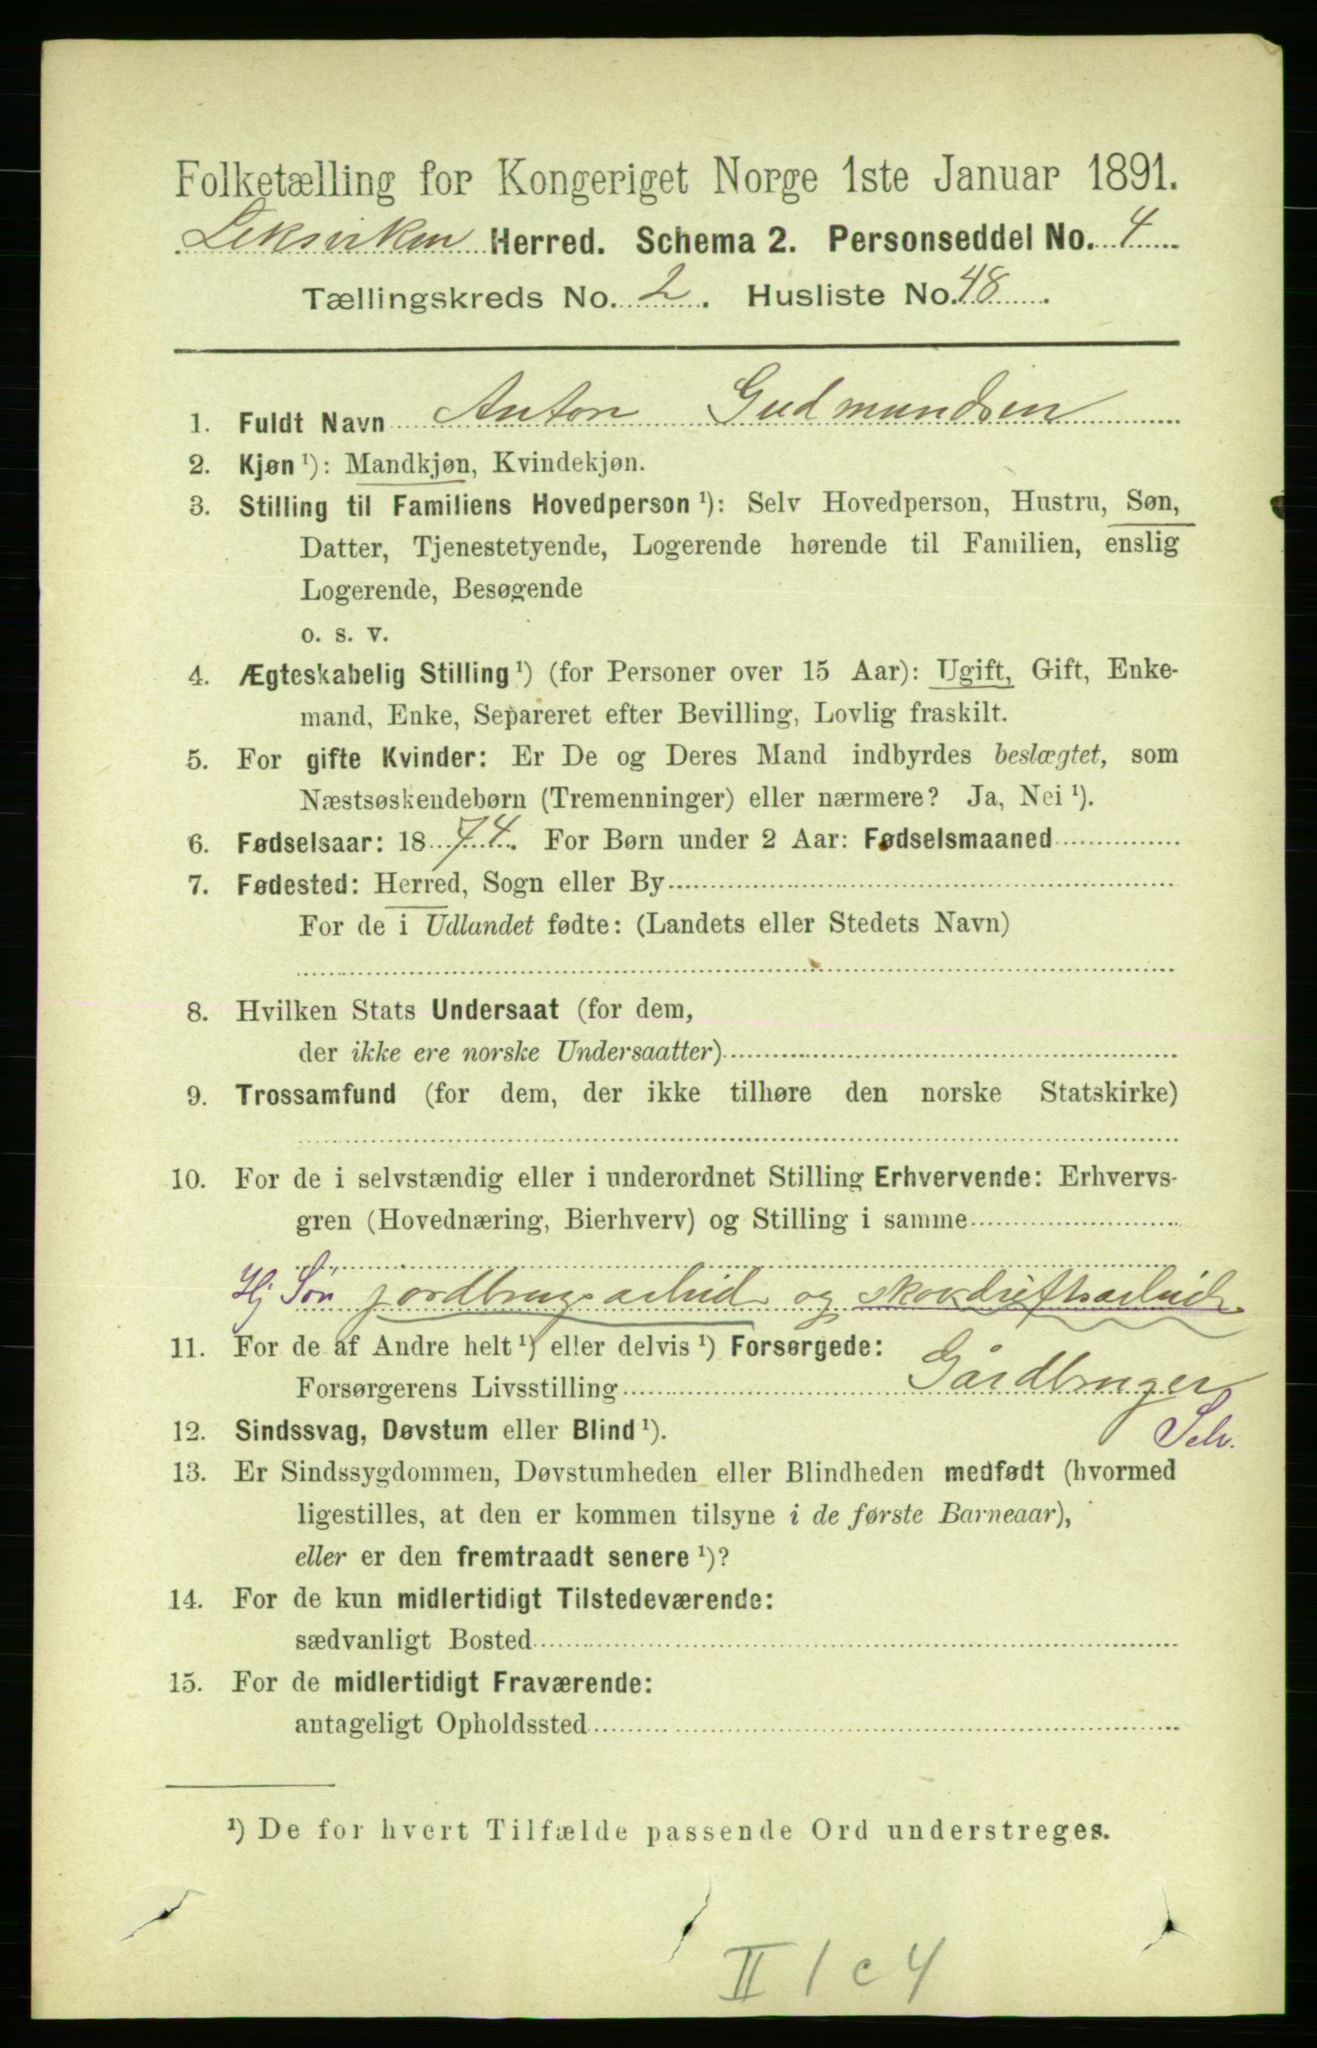 Folketælling for Kongeriget Norge 1ste Januar 1891.
Leksviken Herred. Schema 2. Personseddel No. 4
Tællingskreds No. 2. Husliste No. 48.
1. Fuldt Navn Anton Gudmundsen
2. Kjøn ¹): Mandkjøn, Kvindekjøn.
3. Stilling til Familiens Hovedperson ¹): Selv Hovedperson, Hustru, Søn,
Datter, Tjenestetyende, Logerende hørende til Familien, enslig
Logerende, Besøgende
o. s. v.
4. Ægteskabelig Stilling ¹) (for Personer over 15 Aar): Ugift, Gift, Enke-
mand, Enke, Separeret efter Bevilling, Lovlig fraskilt.
5. For gifte Kvinder: Er De og Deres Mand indbyrdes beslægtet, som
Næstsøskendebørn (Tremenninger) eller nærmere? Ja, Nei ¹).
6. Fødselsaar: 1874. For Børn under 2 Aar: Fødselsmaaned
7. Fødested: Herred, Sogn eller By
For de i Udlandet fødte: (Landets eller Stedets Navn)
8. Hvilken Stats Undersaat (for dem,
der ikke ere norske Undersaatter)
9. Trossamfund (for dem, der ikke tilhøre den norske Statskirke)
10. For de i selvstændig eller i underordnet Stilling Erhvervende: Erhvervs-
gren (Hovednæring, Bierhverv) og Stilling i samme
Hj Søn jordbrugsarbeid og skovdriftsarbeid
11. For de af Andre helt ¹) eller delvis ¹) Forsørgede:
Forsørgerens Livsstilling Gårdbruger
Selv.
12. Sindssvag, Døvstum eller Blind ¹).
13. Er Sindssygdommen, Døvstumheden eller Blindheden medfødt (hvormed
ligestilles, at den er kommen tilsyne i de første Barneaar),
eller er den fremtraadt senere ¹)?
14. For de kun midlertidigt Tilstedeværende:
sædvanligt Bosted
15. For de midlertidigt Fraværende:
antageligt Opholdssted
¹) De for hvert Tilfælde passende Ord understreges.
II 1 c 4